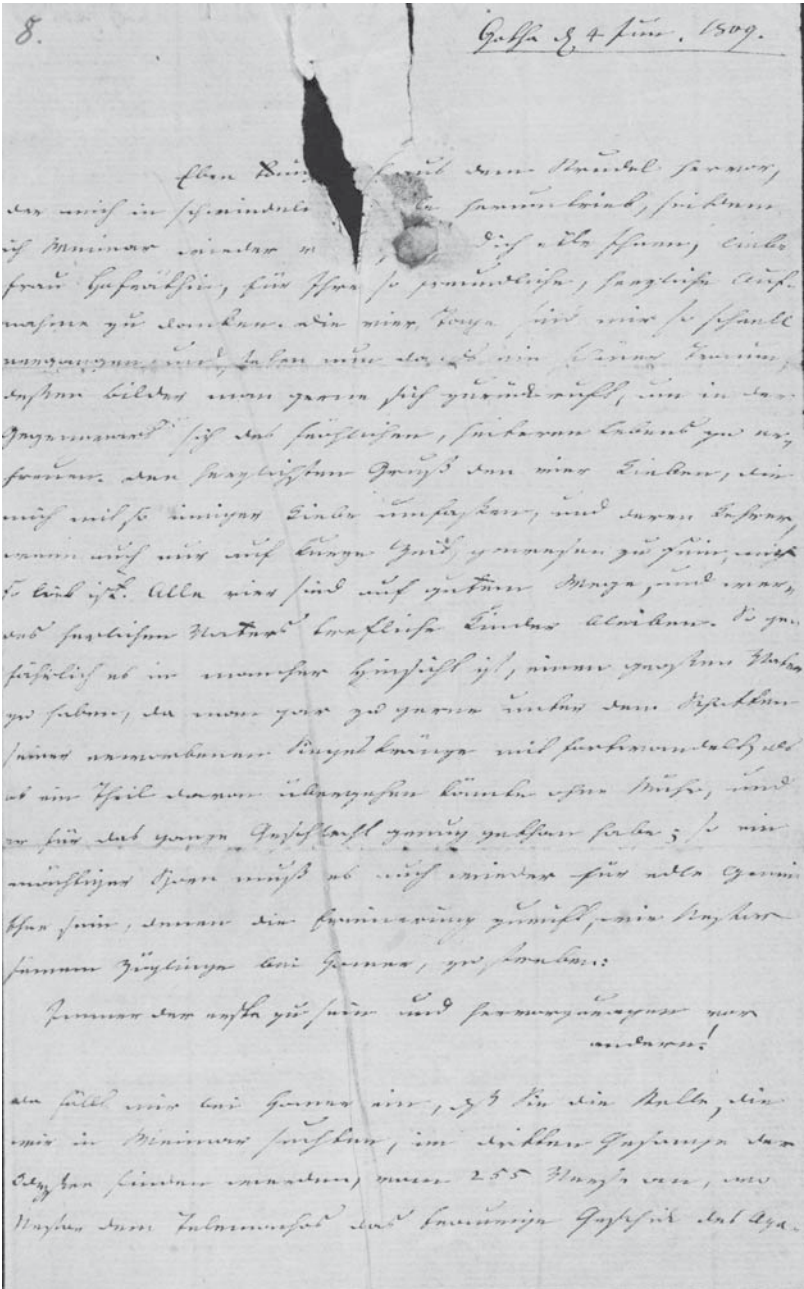 8.
Gotha d. 4 Jun. 1809.
Eben aus dem Strudel hervor,
der mich in herumtrieb, seitdem
ich Weimar wieder Ihnen, liebe
Frau Hofräthin, für Ihre so freundliche, herzliche Auf-
nahme zu danken. Die vier Tage sind mir so schnell
vergangen und stehen nun da als ein schöner Traum,
deßen Bilder man gerne sich zurückruft, um in der
Gegenwart sich des fröhlichen, heiteren Lebens zu er-
freuen. Den herzlichsten Gruß den vier Lieben, die
mich mit so inniger Liebe umfaßten, und deren Lehrer,
wenn auch nur auf kurze Zeit, gewesen zu sein, mir
so lieb ist. Alle vier sind auf gutem Wege, und
des herlichen Vaters trefliche Kinder bleiben. So ge-
fährlich es in mancher Hinsicht ist, einen großen Vater
zu haben, da man gar zu gerne unter dem Schatten
seiner erworbenen Siegeskränze mit fortwandelt, als
ob ein Theil davon übergehen könnte ohne Mühe, und
er für das ganze Geschlecht genug gethan habe; so ein
mächtiger Sporn muß es auch wieder für edle Gemü-
ther sein, denen die Erinnerung zuruft, wie Nestor
seinem Zöglinge bei Homer, zu streben:
Immer der erste zu sein und hervorzuragen vor
andern!
Da fällt mir bei Homer ein, daß Sie die Stelle, die
wir in Weimar suchten, im dritten Gesange der
Odyßee finden werden, vom 255 Verse an, wo
Nestor dem Telemachos das traurige Geschick des Aga-